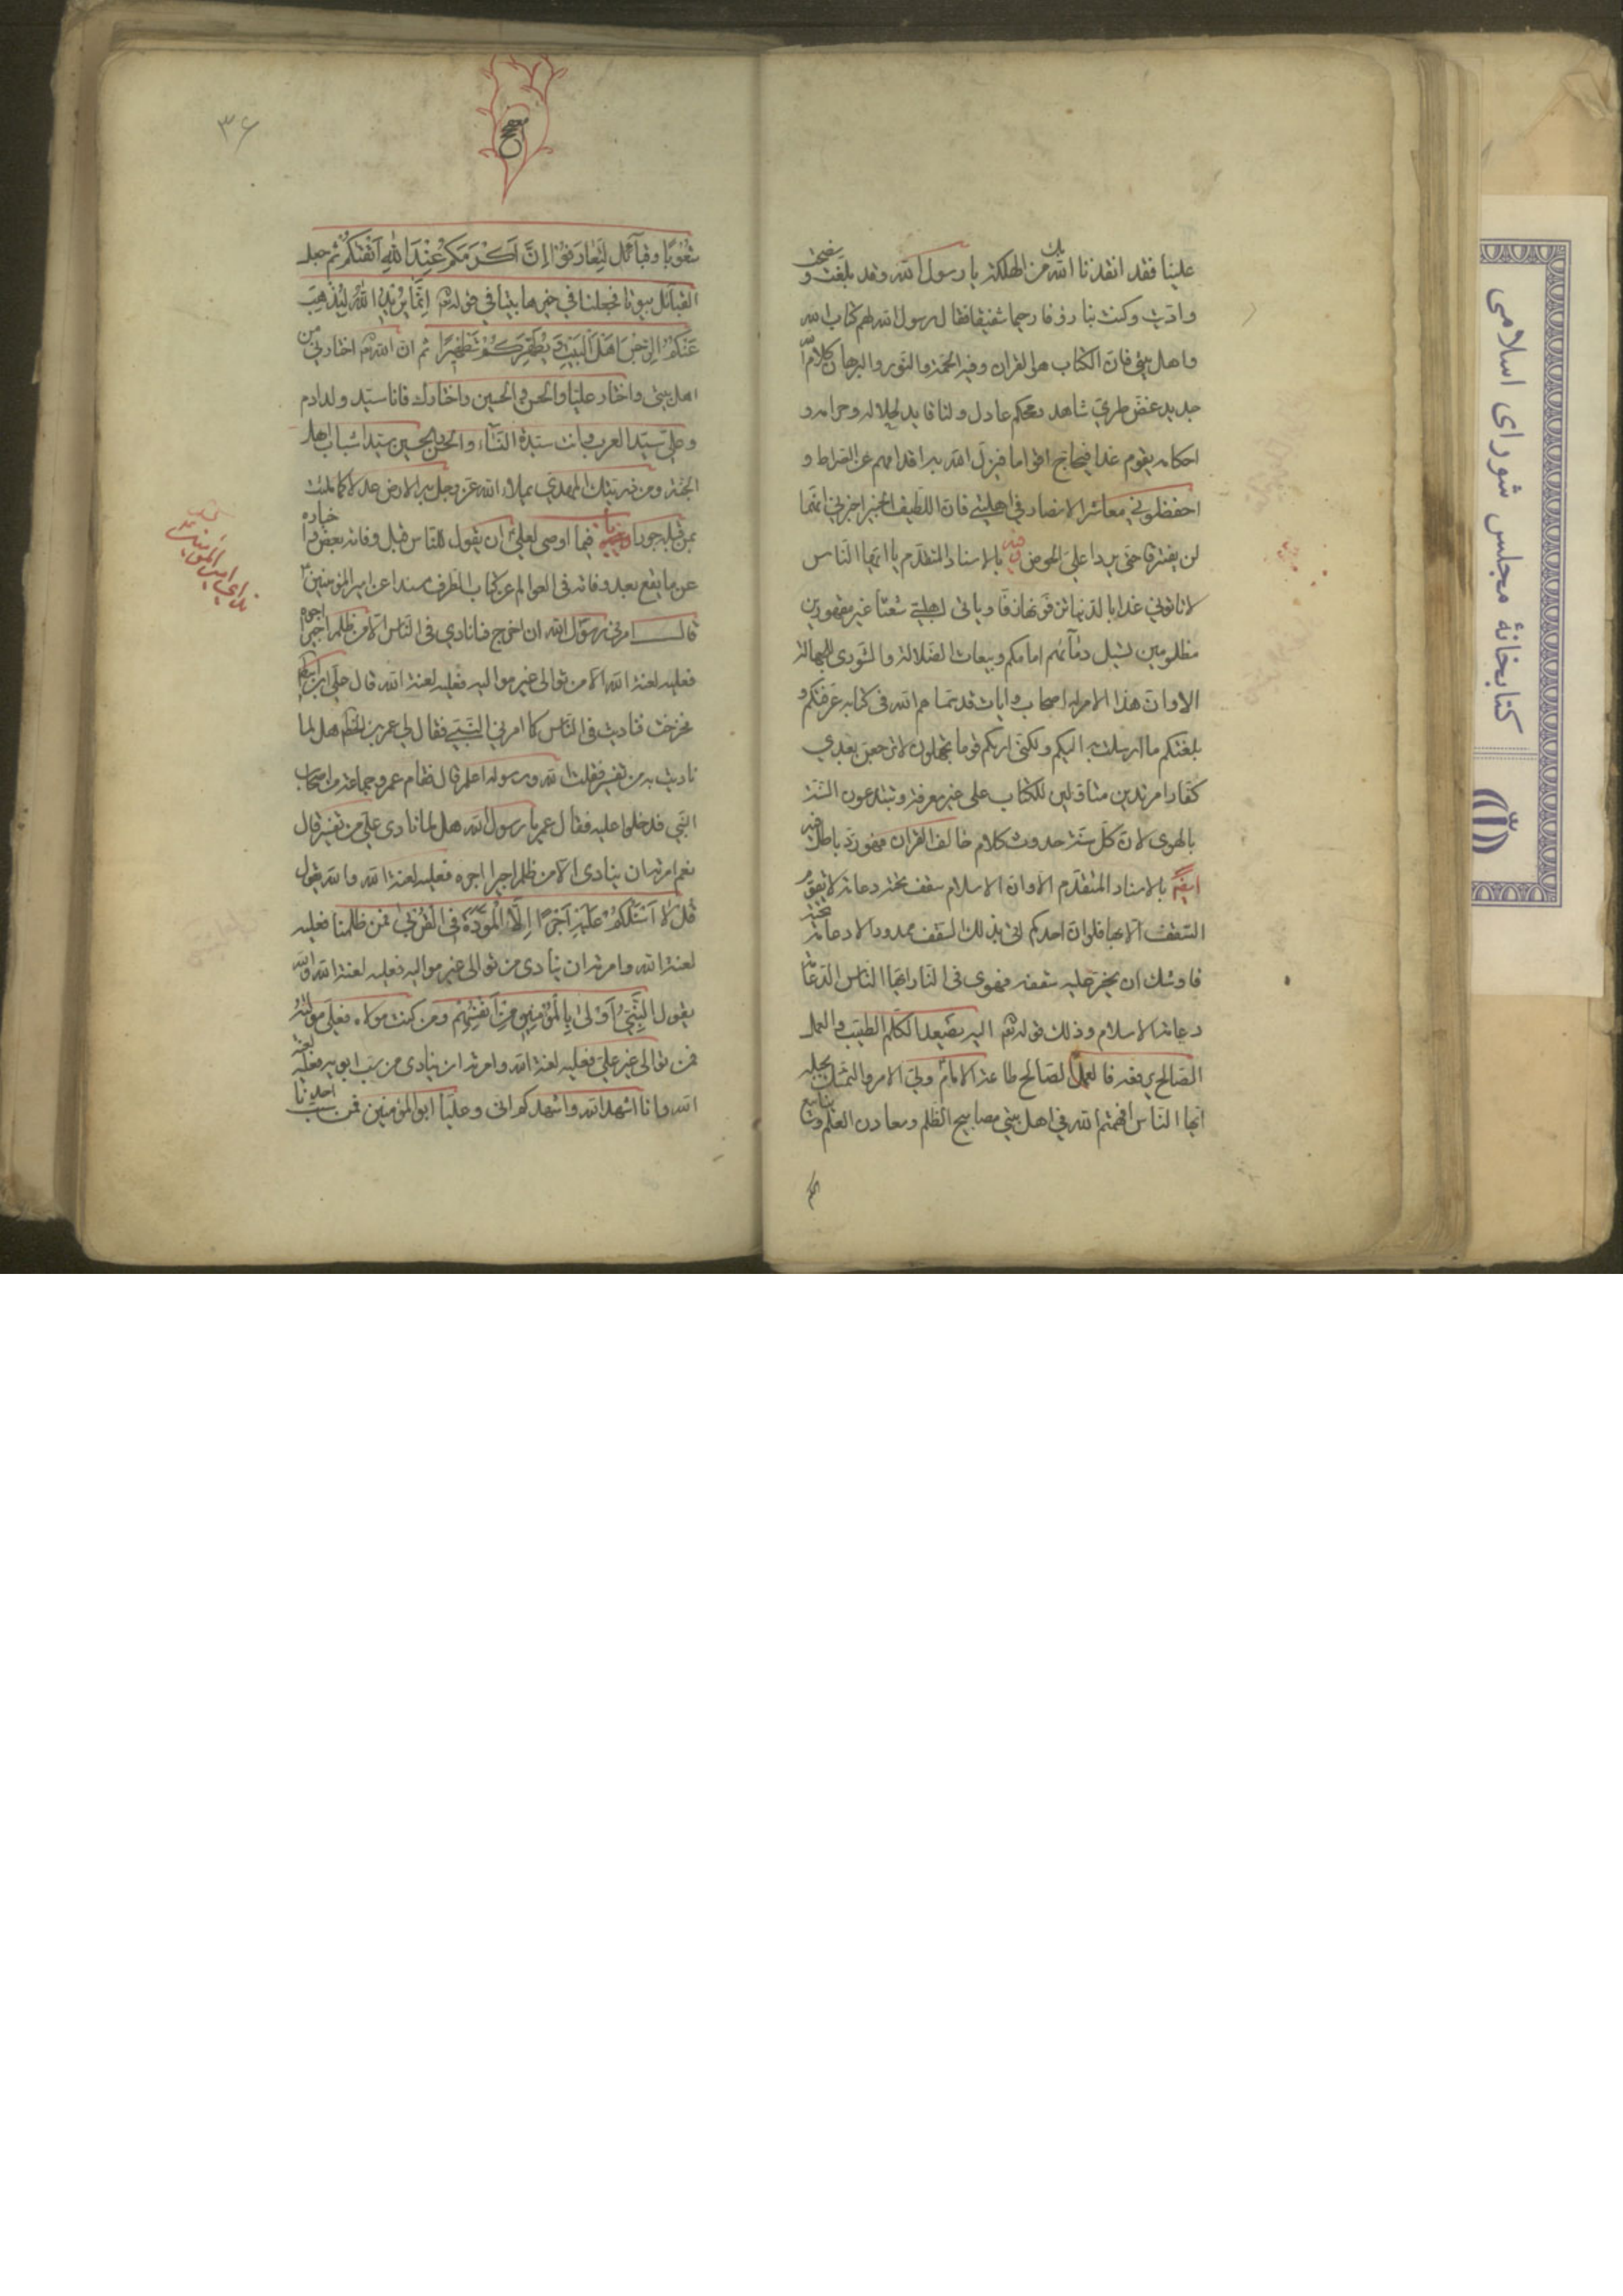 علينا فقد انقذنا الله بك من الهلكة يا رسول الله وقد بلغت و نصحت
واديت وكنت بنا رؤفا رحيما شفيقا فقال رسول الله لهم كتاب الله
واهل بيتي فان الكتاب هو القران وفيه الحجة والنور والبرهان كلام الله
جديد غض طري شاهد ومحكم عادل ولنا قايد لحلاله وحرامه و
احكامه يقوم غدا فيحاج اقواما فيزل الله به اقدامهم عن الصراط و
احفظوني معاشر الانصار في اهلبيتي فان اللطيف الخبير اخبرني انهما
لن يفترقا حتى يردا علي الحوض وفيه بالاسناد المتقدم يا ايها الناس
لا تاتوني غدا بالدنيا تزفونها زفا وياتي اهلبيتي شعثا غبر مقهورين
مظلومين تسيل دمائهم امامكم وبيعات الضلالة والشورى للجهالة
الا وان هذا الامر له اصحاب وايات قد سماهم الله في كتابه عرفتكم و
بلغتكم ما ارسلت به اليكم ولكني اريكم قوما تجهلون لا ترجعن بعدي
كفارا مرتدين متاولين للكتاب على غير معرفة وتبتدعون السنة
بالهوى لان كل سنة حدوث كلام خالف القران فهو رد باطل فيه
ايضا بالاسناد المتقدم الا وان الاسلام سقف تحته دعامة لا يقوم
السقف الا بها فلو ان احدكم اتى بذلك السقف ممدودا لا دعامة تحته
فاوشك ان يخر عليه سقفه فهوى في النار ايها الناس الدعامة
دعامة الاسلام وذلك قوله تعالى اليه يصعد الكلم الطيب والعمل
الصالح يرفعه فالعمل الصالح طاعة الامام ولي الامر والتمسك بحبله
ايها الناس افهمتم الله في اهل بيتي مصابيح الظلم ومعادن العلم وينابيع
الحكم
٣٦
شعوبا وقبآئل لتعارفوا ان اكرمكم عند الله اتقيكم ثم جعل
القبائل بيوتا فجعلنا في خيرها بيتا في قوله تعالى انما يريد الله ليذهب
عنكم الرجس اهل البيت ويطهركم تطهيرا ثم ان الله اختارني من
اهل بيتي واختار عليا والحسن والحسين واختارك فانا سيد ولد ادم
وعلي سيد العرب وانت سيدة النساء والحسن والحسين سيدا شباب اهل
الجنة ومن ذريتك المهدي يملاء الله عز وجل به الارض عدلا كما ملئت
من قبله جورا فيما اوصى لعلي ان يقول للناس قبل وفاته بعض اخباره
عن ما يقع بعد وفاته في العوالم عن كتاب الطرف مسندا عن امير المؤمنين
قال امرني رسول الله ان اخرج فانادي في الناس الا من ظلم اجيرا اجره
فعليه لعنة الله الا من توالى غير مواليه فعليه لعنة الله قال علي ابن ابيطالب
فخرجت فناديت في الناس كما امرني النبي فقال لي عمر بن الخطاب هل لما
ناديت به من تفسير فقلت الله ورسوله اعلم قال فقام عمر وجماعة من اصحاب
النبي فدخلوا عليه فقال عمر يا رسول الله هل لما نادى علي من تفسير قال
نعم امرته ان ينادى الا من ظلم اجيرا اجره فعليه لعنة الله والله يقول
قل لا اسئلكم عليه اجرا الا المودة في القربى فمن ظلمنا فعليه
لعنة الله وامرته ان ينادى من توالى غير مواليه فعليه لعنة الله والله
يقول النبي اولى بالمؤمنين من انفسهم ومن كنت مولاه فعلي مولاه
فمن توالى غير علي فعليه لعنة الله وامرته ان ينادى من سب ابويه فعليه لعنة
الله وانا اشهد الله واشهدكم اني وعليا ابوا المؤمنين فمن سب احدنا
نداي امير المؤمنين
کتابخانهٔ مجلس شورای اسلامی